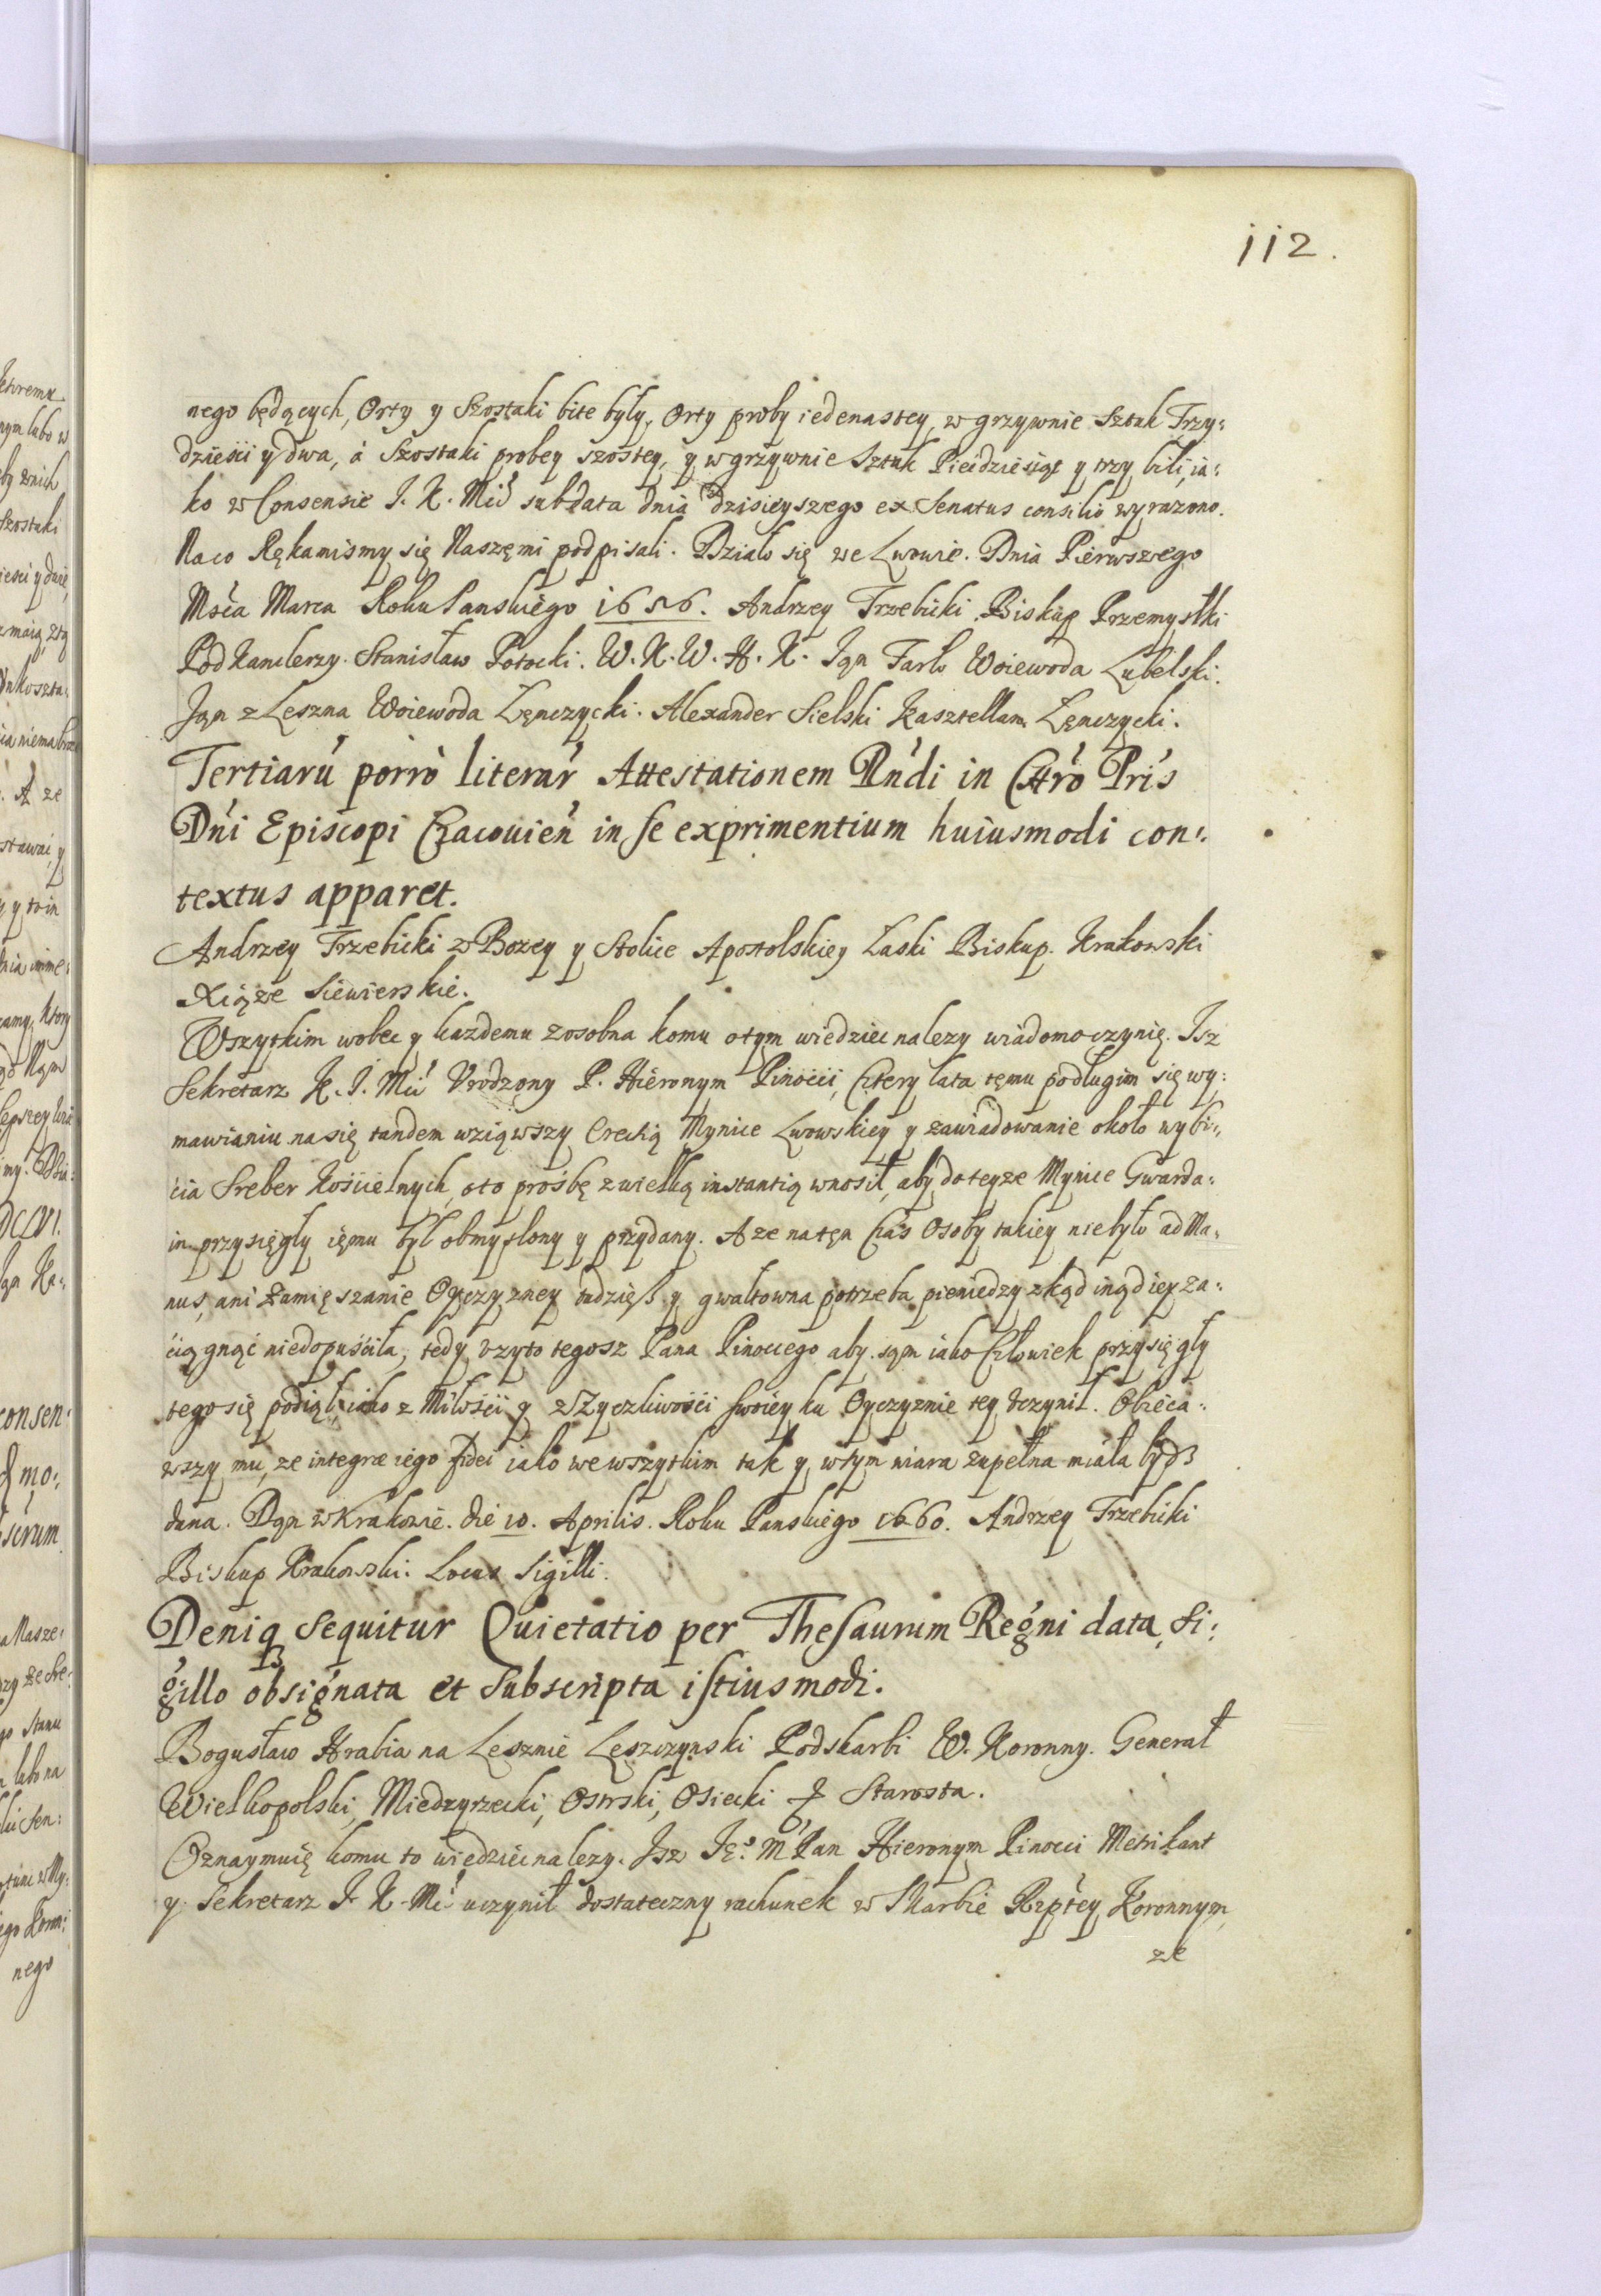 112.
nego będących, Orty y Szostaki bite były, Orty proby iedenastey, w grzywnie Sztuk Trzy:
dzieści y dwa, á Szostaki probey szostey, y w grzywnie Sztuk Pieidziesiąt y trzy bili, ia:
ko w Consensie J. K. Mići sub data dnia dzisieyszego ex Senatus consilio wyrazono.
Na co Rękamismy się Naszęmi podpisali. Działo się we Lwowie. Dnia Pierwszego
Mśca Marca Roku Panskiego 1656. Andrzey Trzebicki Biskup Przemysłki
Podkanclerzy. Stanisław Potocki. W. K. W. H. K. Jąn Tarło Woiewoda Lubelski.
Jąn z Leszna Woiewoda Łęnczycki. Alexander Sielski Kasztellan Łęnczycki.
Tertiarú porrò literar' Attestationem Rńdi in Chro Pris
Dńi Episcopi Cracovień in se exprimentium huiusmodi con:
textus apparet.
Andrzey Trzebicki z Bozey y Stolice Apostolskiey Łaski Biskup Krakowski
Xiąze Siewierskie.
Wszytkim wobec y kazdemu zosobna komu o tym wiedziec nalezy wiadomo czynię. Isz
Sekretarz K. J. Mći Vrodzony P. Hieronym Pinocci, Cztery lata tęmu podługim się wy:
mawianiu na się tandem wziąwszy Erectią Mynice Lwowskiey y zawiadowanie około wybi:
cia Sreber Kościelnych, o to prośbę z wielką instantią wnosił, aby do teyze Mynice Gwarda:
in przysięgły ięmu był obmyslony y przydany. A ze na tęn Czas Osoby takiey niebyło ad Ma:
nus, ani zamięszanie Oyczyzney tudzięß y gwałtowna potrzeba pieniedzy zkąd inądiey za:
ciągnąć niedopuściła, tedy vzyto tegosz Pana Pinocego aby sąm iako Człowiek przysięgły
tego się podiął, iako z Miłości y z Zyczliwości swoiey ku Oyczyznie tey vczynił. Obieca:
wszy mu, ze integræ iego fidei iako we wszytkim tak y w tym wiara zupełna miała bydz
dana. Dąn w Krakowie. die 10. Aprilis. Roku Panskiego 1660. Andrzey Trzebicki
Biskup Krakowski. Locus Sigilli.
Deniq3 sequitur Quietatio per Thesaurum Regni data, Si:
gillo obsignata et Subscripta istiusmodi.
Bogusław Hrabia na Lesznie Leszczynski Podskarbi W. Koronny. Generał
Wielkopolski, Miedzyrzecki, Ostrski, Osiecki & Starosta.
Oznaymuię komu to wiedziec nalezy. Isz Ję: M Pan Hieronym Pinocci Metrikant
y Sekretarz J. K. Mći uczynił dostateczny rachunek w Skarbie Rzptey Koronnym,
ze